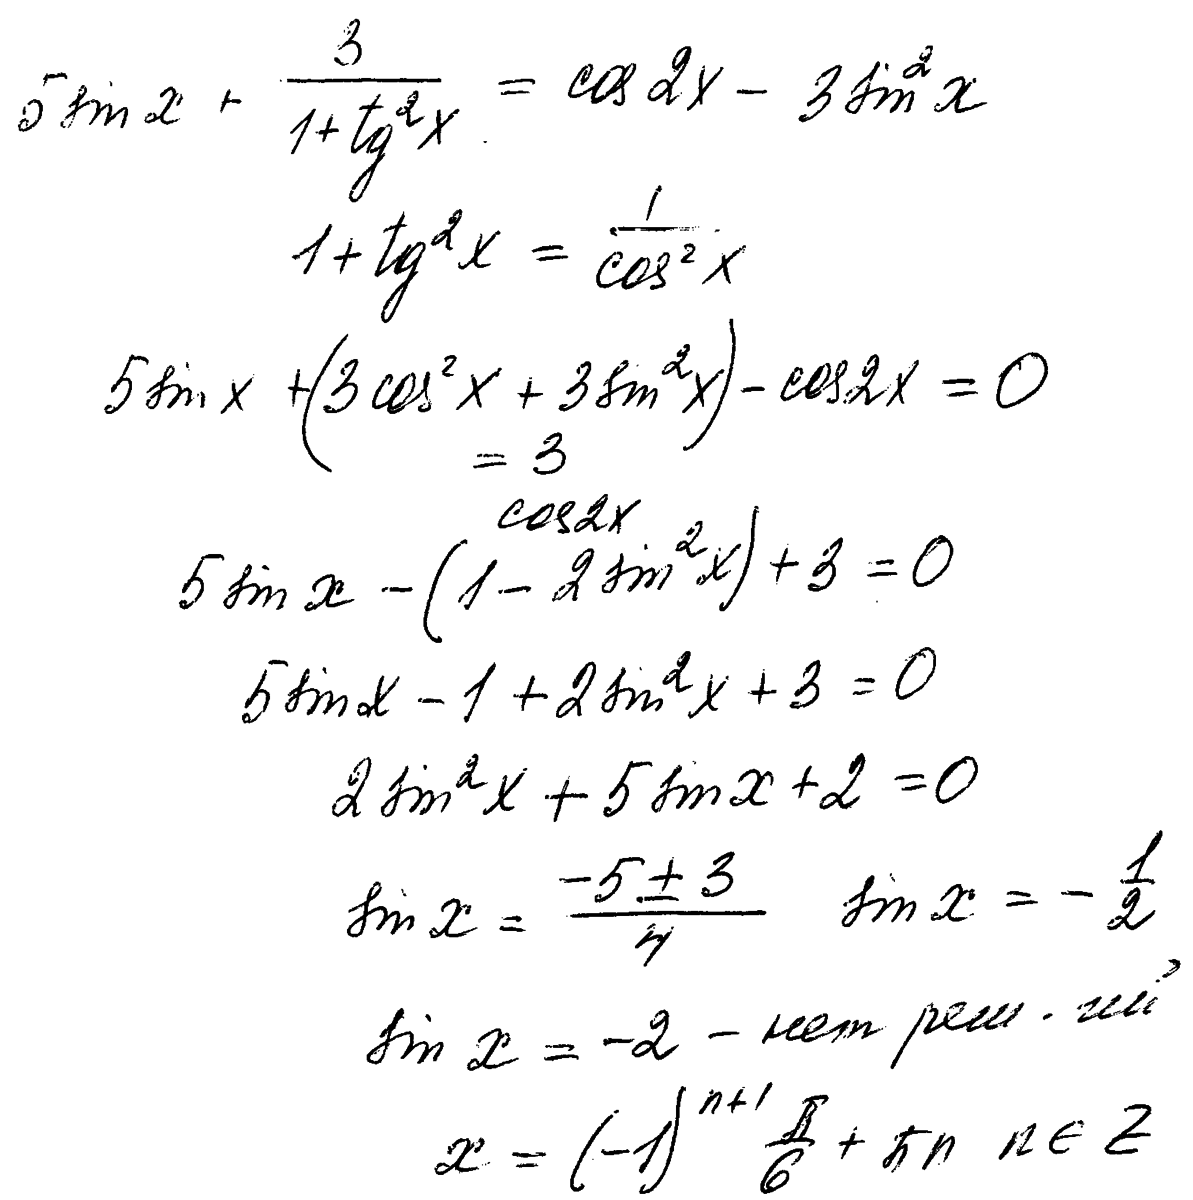 5 sin x + 3/(1+tg²x) = cos 2x − 3 sin² x
1+tg²x = 1/cos²x
5 sin x + (3 cos²x + 3 sin²x) − cos2x = 0
= 3
cos2x
5 sin x − (1 − 2 sin²x) + 3 = 0
5 sin x − 1 + 2 sin²x + 3 = 0
2 sin²x + 5 sin x + 2 = 0
sin x = (−5 ± 3)/4 sin x = −1/2
sin x = −2 – нет реш.-ний
x = (−1)ⁿ⁺¹ π/6 + πn n ∈ Z